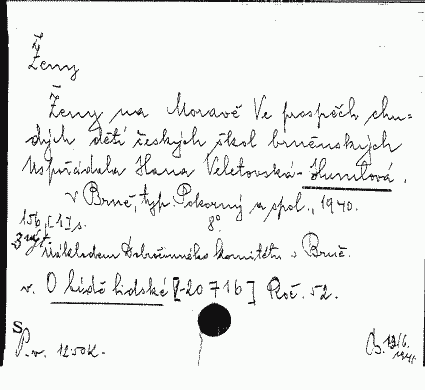 Ženy
Ženy na Moravě Ve prospěch chu=
dých dětí českých škol brněnských
Uspořádala Hana Veletovská-Humlová.
v Brně, typ. Pokorný a spol., 1940.
156, [1] s. 8°.
Nákladem Dobročinného komitétu v Brně.
v. O bídě lidské [-20716] Roč. 52.
S
P.v. 1250K.